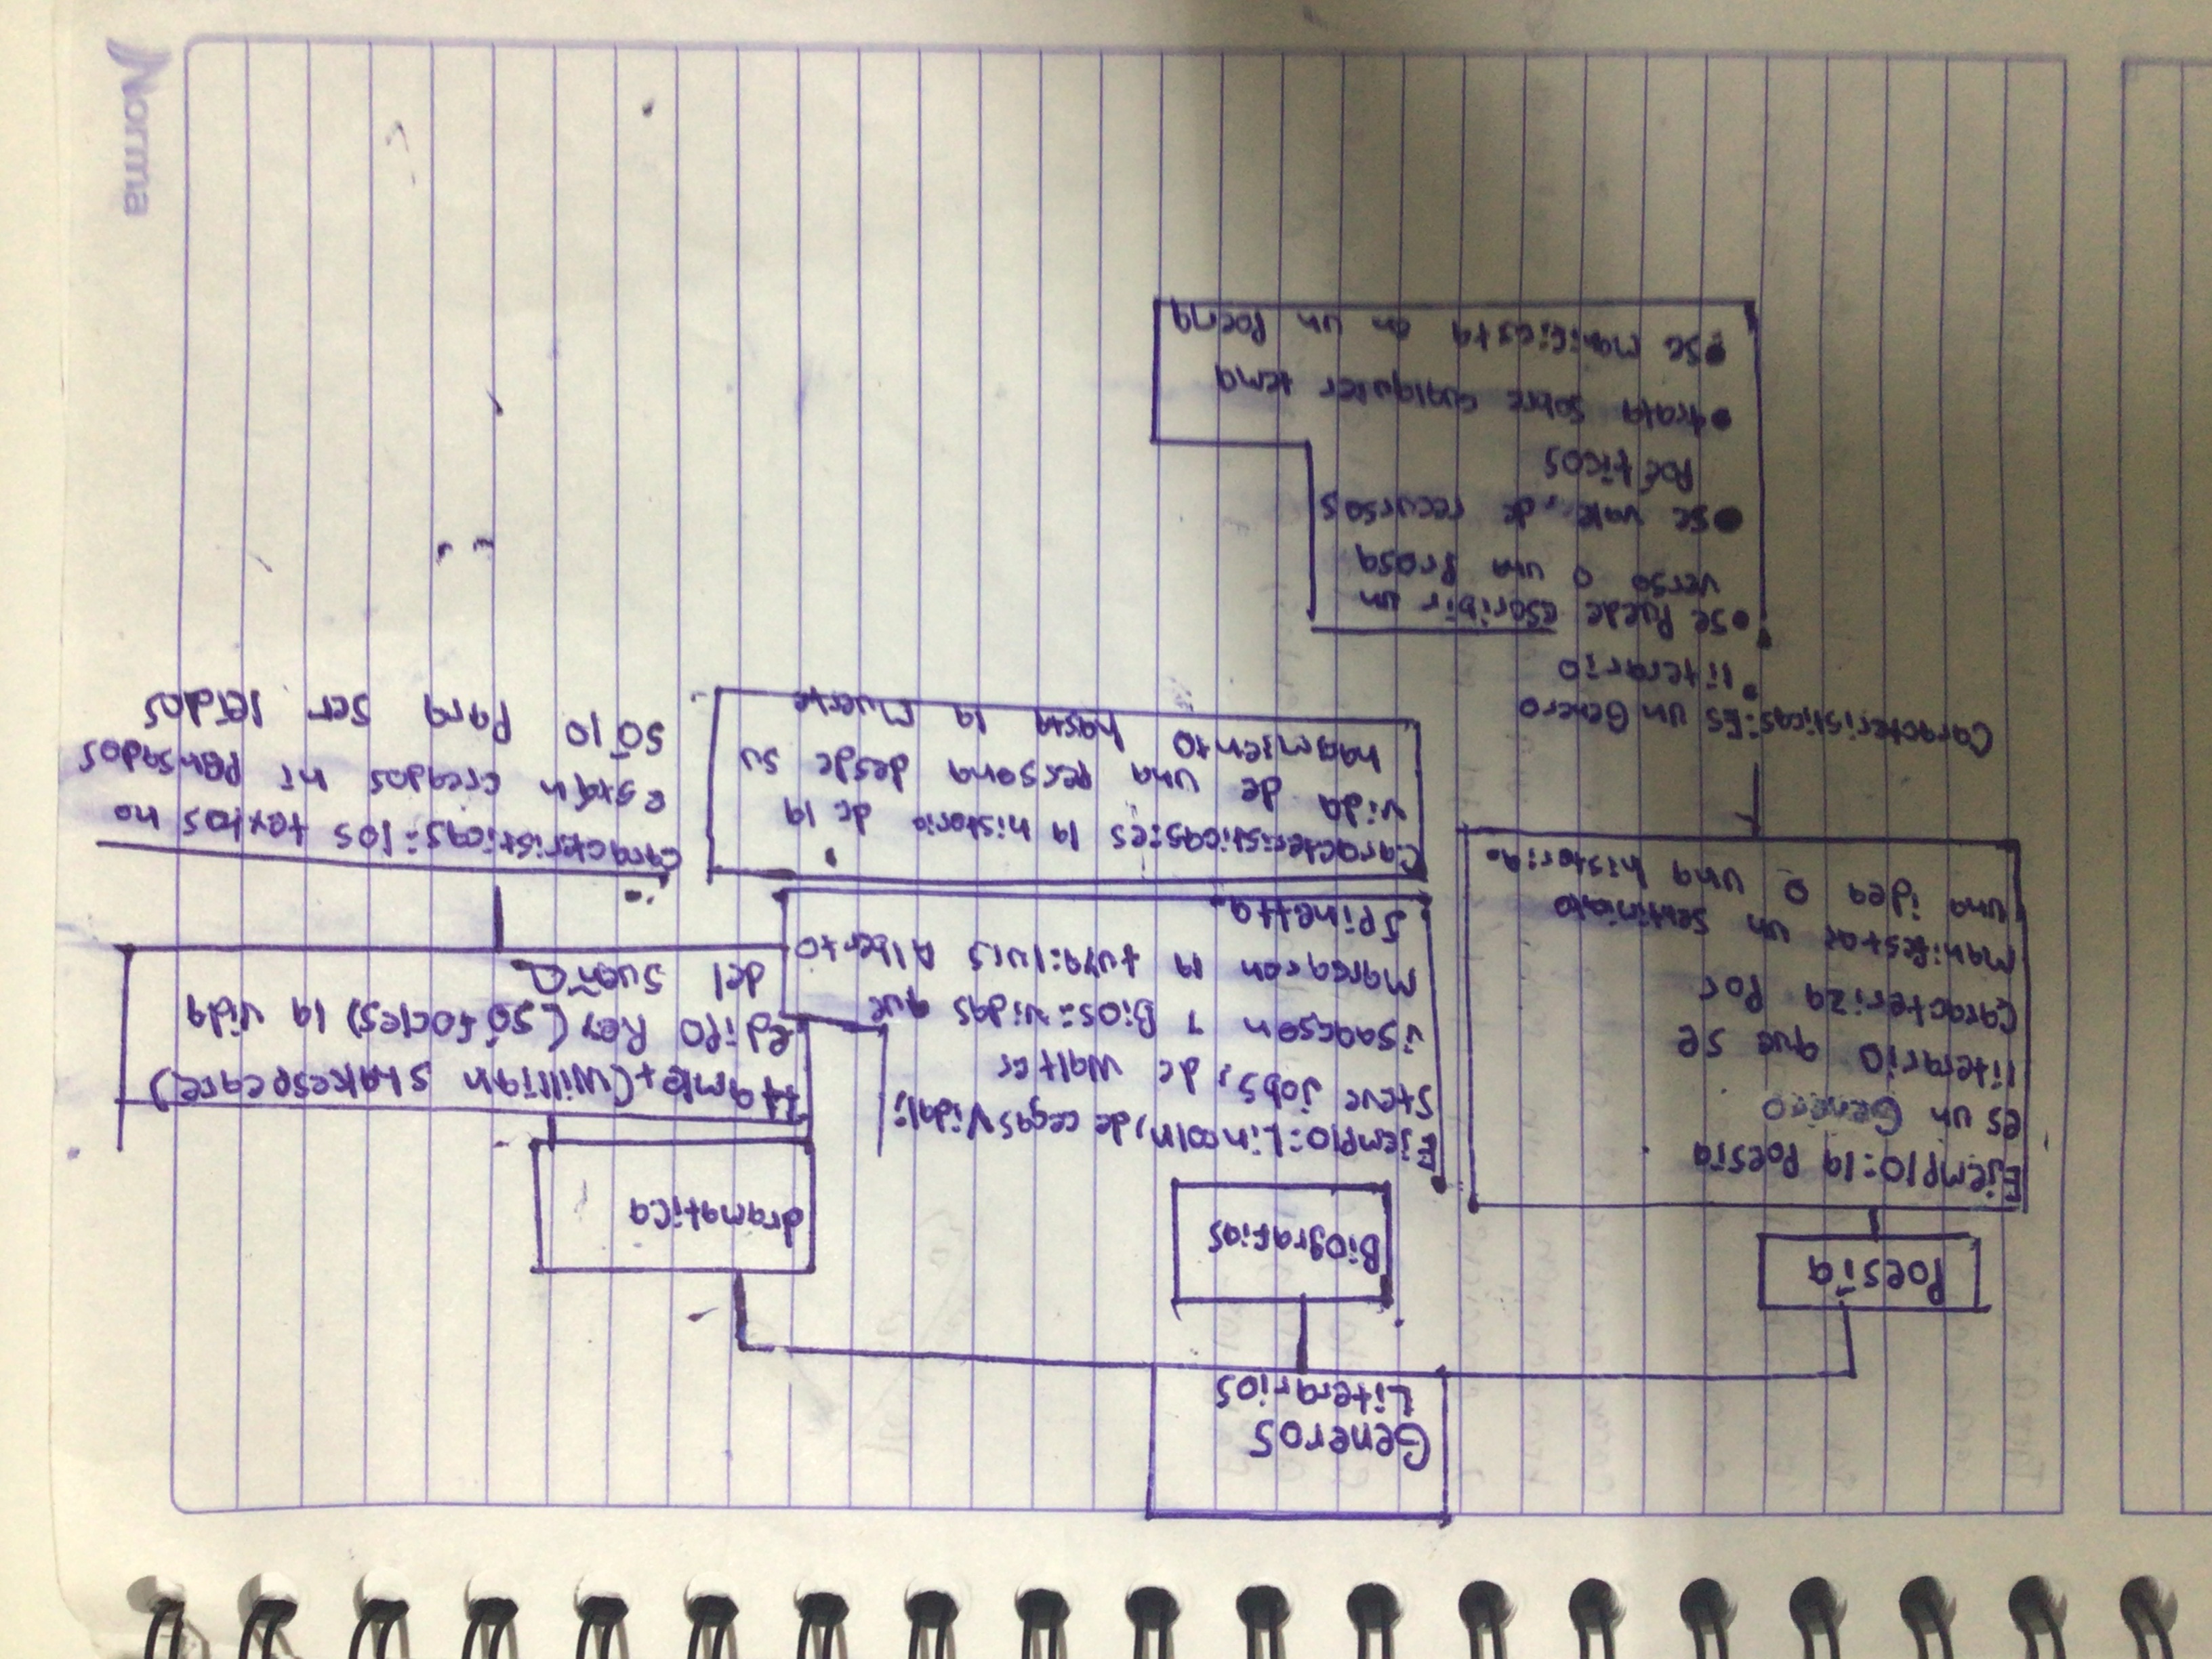 Generos
Literarios
Poesia
Ejemplo: la Poesia
es un Genero
literario que se
Caracteriza Por
Manifestar un sentimiento
una idea o una historia.
Caracteristicas: Es un Genero
literario
• Se Puede escribir un
verso o una Prosa
• Se vale, de recursos
Poéticos
• trata sobre cualquier tema
• Se manifiesta en un Poema
Biografias
Ejemplo: Lincoln, de
Vidal;
Steve Jobs, de Walter
isaacson y Bios: vidas que
marcaron la tuya: luis Alberto
Spinetta.
Caracteristicas: es la historia de la
vida de una persona desde su
hasta la Muerte
dramatica
Hamlet (Willian Shakespeare)
edipo Rey (Sófocles) la vida
del sueño
caracteristicas: los textos no
están creados ni Pensados
sólo para ser leídos
Norma